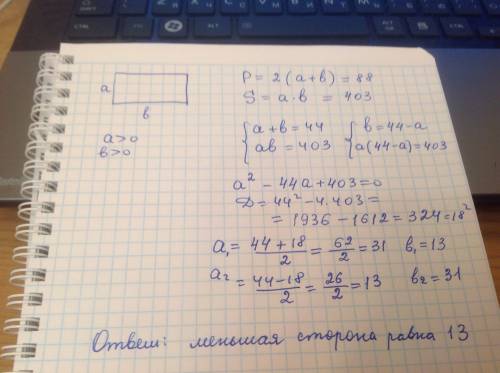 P = 2(a+в) = 88
S = a·в = 403
a
в
a>0
в>0
{a+в=44 {в=44-a
{aв=403 {a(44-a)=403
a² - 44a+403=0
D=44²-4.403=
= 1936-1612=324=18²
a₁= 44+18/2 = 62/2 = 31 в₁=13
a₂ = 44-18/2 = 26/2 = 13 в₂=31
Ответ: меньшая сторона равна 13